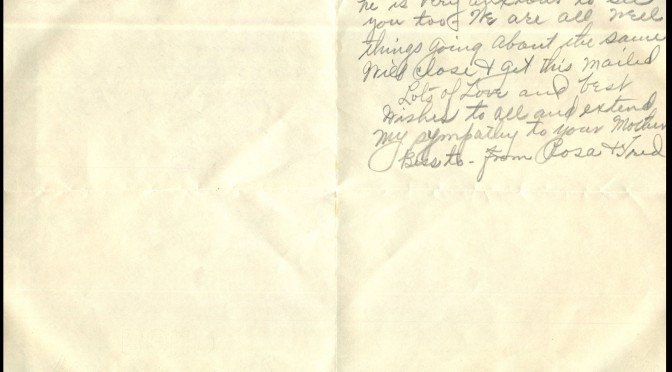 he is very anxious to see
you too - We are all well
things going about the same
Will close & get this mailed
Lots of Love and best
Wishes to all and extend
my sympathy to your Mother
from Rosa & Fred